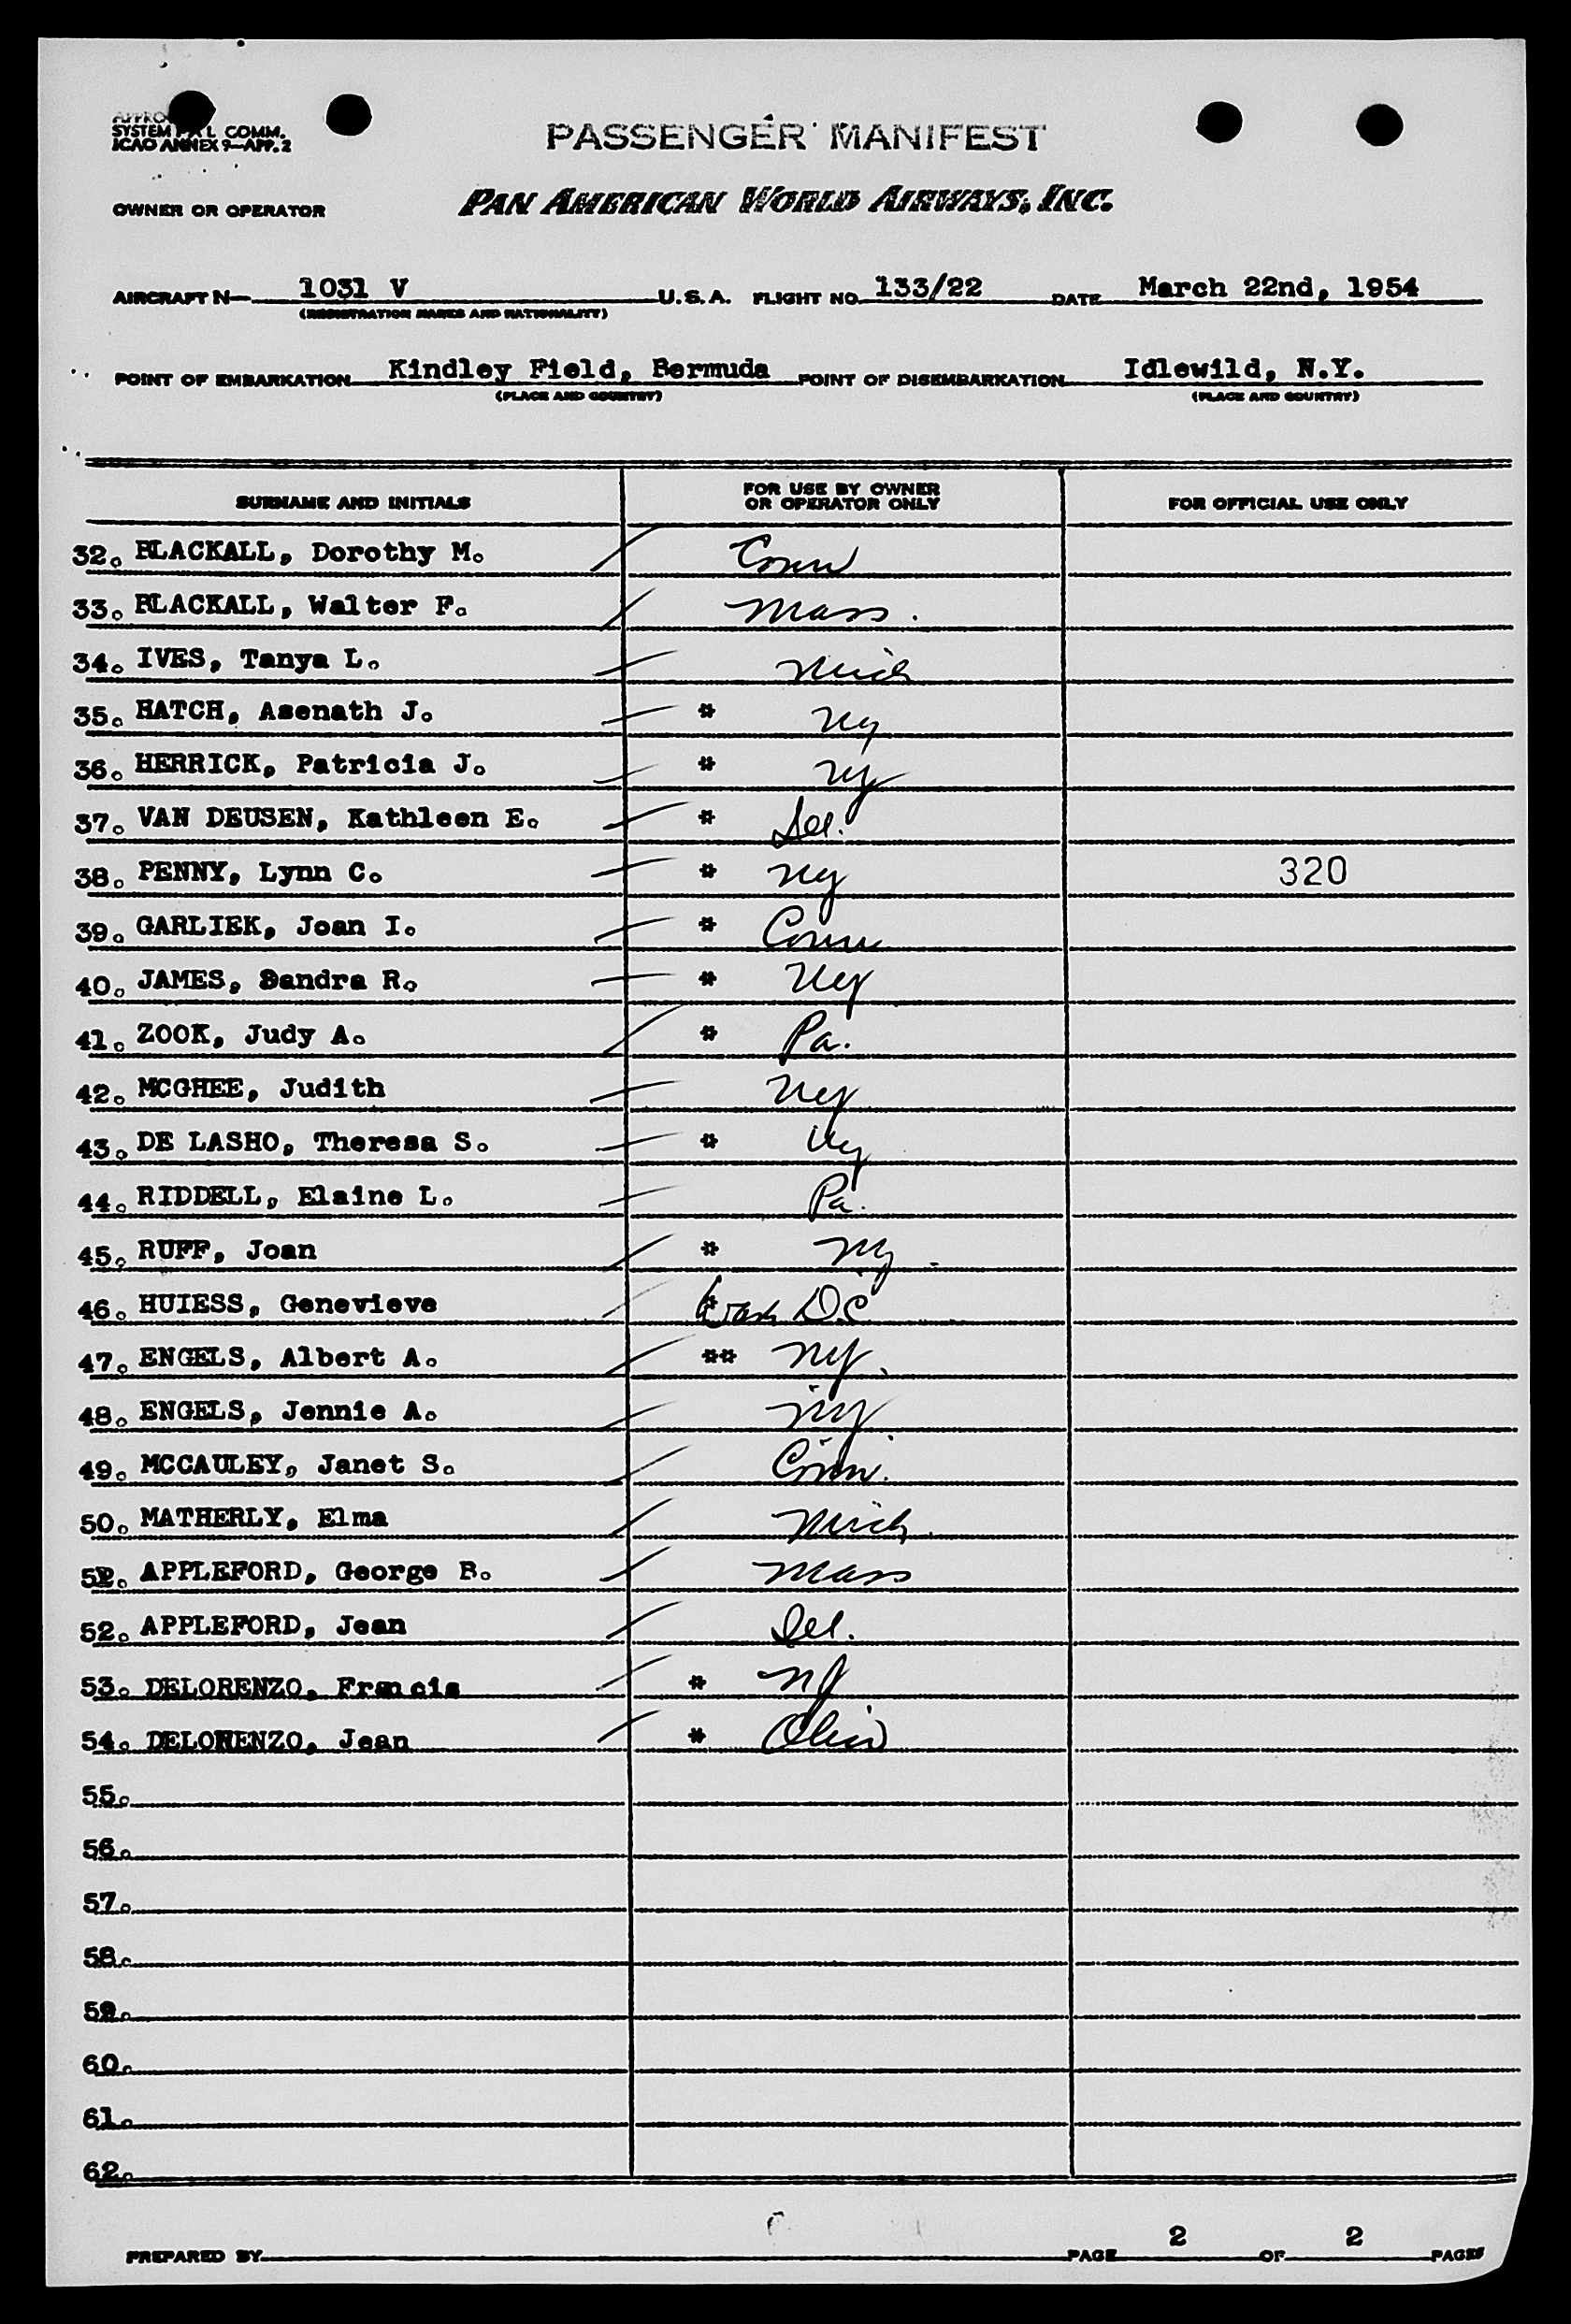 SYSTEM COMM.
ICAO ANNEX 9—APP. 2
PASSENGER MANIFEST
OWNER OR OPERATOR PAN AMERICAN WORLD AIRWAYS, INC.
AIRCRAFT N— 1031 V U.S.A. FLIGHT NO. 133/22 DATE March 22nd, 1954
(REGISTRATION MARKS AND NATIONALITY)
POINT OF EMBARKATION Kindley Field, Bermuda POINT OF DISEMBARKATION Idlewild, N.Y.
(PLACE AND COUNTRY) (PLACE AND COUNTRY)
SURNAME AND INITIALS FOR USE BY OWNER OR OPERATOR ONLY FOR OFFICIAL USE ONLY
32. BLACKALL, Dorothy M. Conn
33. BLACKALL, Walter F. Mass.
34. IVES, Tanya L. Mich
35. HATCH, Asenath J. * NY
36. HERRICK, Patricia J. * NY
37. VAN DEUSEN, Kathleen E. * Del.
38. PENNY, Lynn C. * NY 320
39. GARLIEK, Joan I. * Conn
40. JAMES, Sandra R. * NY
41. ZOOK, Judy A. * Pa.
42. MCGHEE, Judith NY
43. DE LASHO, Theresa S. * NY
44. RIDDELL, Elaine L. Pa.
45. RUFF, Joan * NY
46. HUIESS, Genevieve * Wash DC
47. ENGELS, Albert A. ** NY.
48. ENGELS, Jennie A. NY
49. MCCAULEY, Janet S. Conn.
50. MATHERLY, Elma Mich.
52. APPLEFORD, George B. Mass
52. APPLEFORD, Jean Del.
53. DELORENZO, Francis * NJ
54. DELORENZO, Jean * Ohio
55.
56.
57.
58.
59.
60.
61.
62.
PREPARED BY PAGE 2 OF 2 PAGES